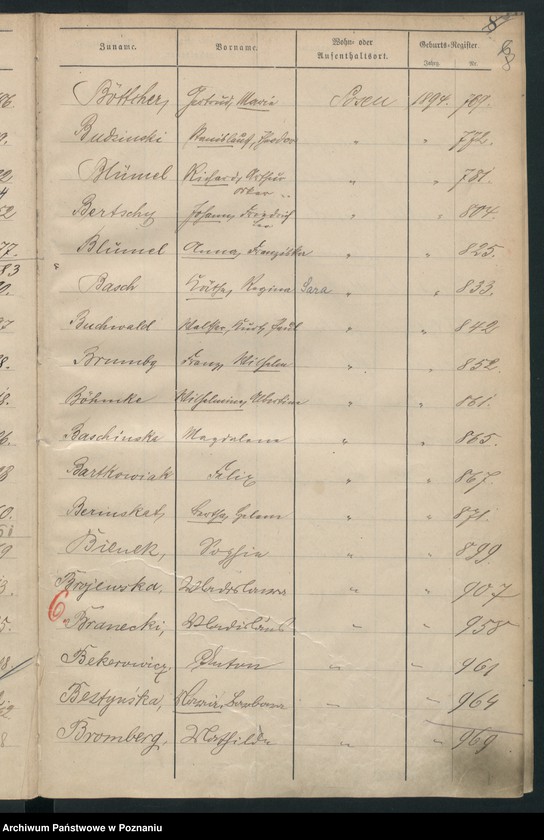 Zuname. Vorname. Wohn- oder Aufenthaltsort. Geburts-Register
Jahrg. Nr.
Böttcher, Gertrud, Marie Posen 1894. 769.
Budzinski Stanislaus, Theodor " " 772.
Blümel Richard, Arthur " " 781.
Oskar
Bertschy Johann, Friedrich " " 804.
Blümel Anna, Franziska " " 825.
Basch Käthe, Regina Sara " " 833.
Buchwald Walther, Kurt, Paul " " 842
Brumby Franz, Wilhelm " " 852.
Böhmke Wilhelmine, Albertine " " 861.
Baschinska Magdalena " " 865.
Bartkowiak Felix " " 867.
Berinskat, Helene " " 871.
Bienek, Sophie " " 899.
Brojewska, Wladislawa " " 907
6
Branecki, Wladislaus " " 958
Bekerowicz, Anton " " 961
Bestyńska, Maria, Barbara " " 964
Bromberg, Mathilde " " 969.
Archiwum Państwowe w Poznaniu